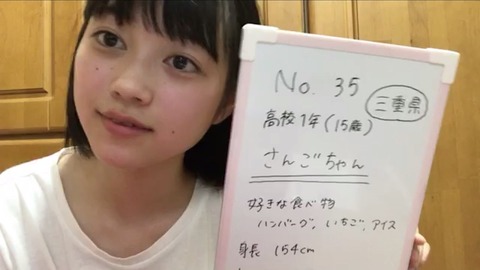 No. 35
三重県
高校1年(15歳)
さんごちゃん
好きな食べ物
ハンバーグ、いちご、アイス
身長 154cm